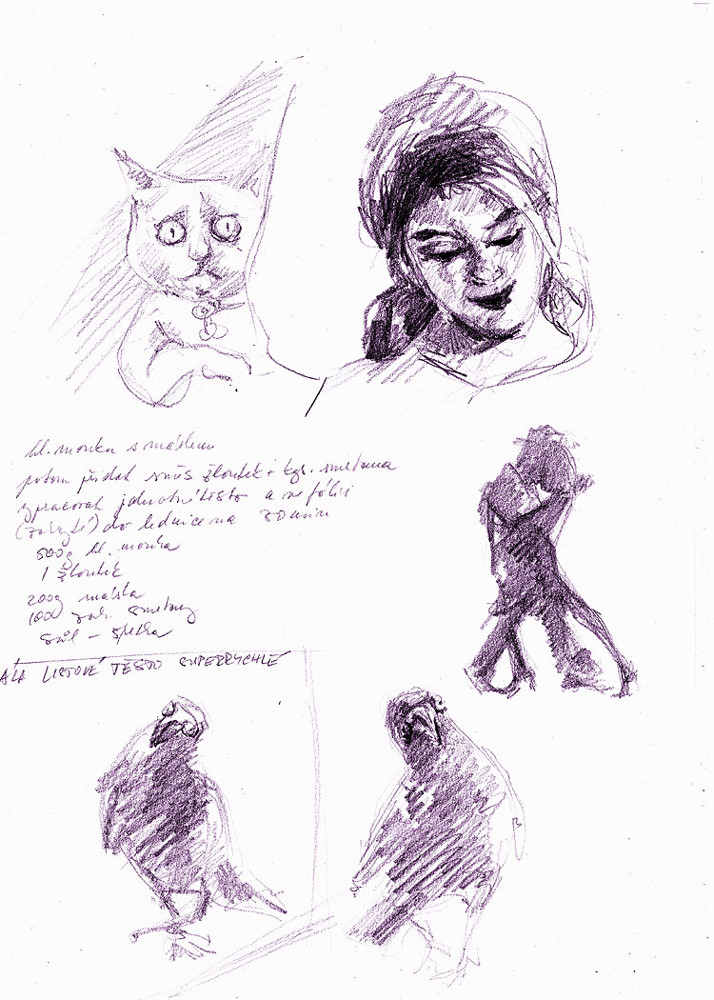 hl. mouka s máslem
potom přidat směs žloutek + kys. smetana
zpracovat jednotné těsto a ve fólii
(zakryté) do lednice na 30 min
500g hl. mouka
1 žloutek
200g másla
100 zak. smetany
sůl – špetka
ALA LISTOVÉ TĚSTO SUPERRYCHLÉ